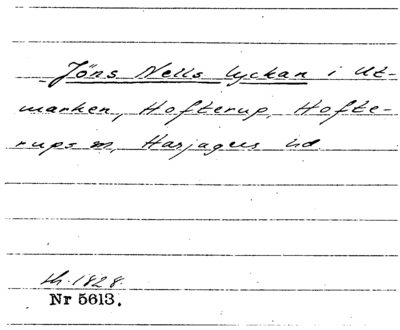 Jöns Nells lyckan i Ut-
marken, Hofterup, Hofte-
rups sn, Harjagers hd
lh. 1828.
Nr 5613.